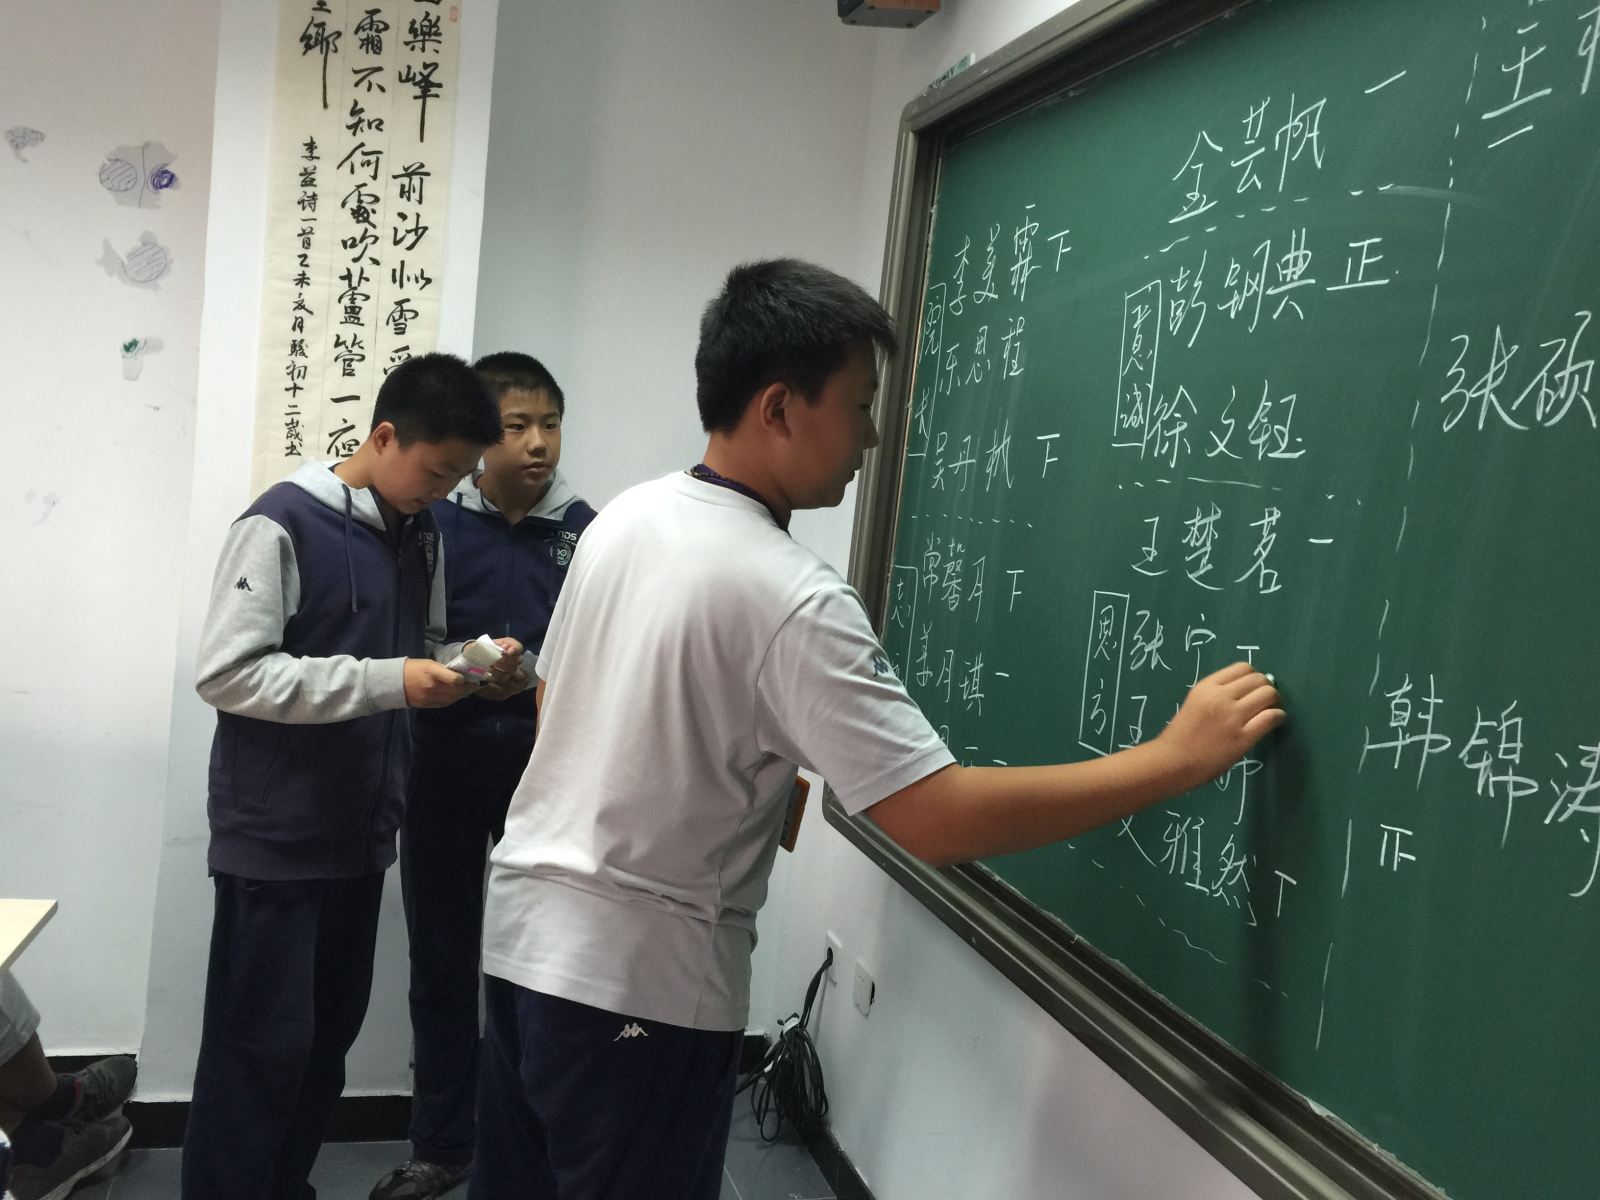 樂峰前沙似雪受
霜不知何處吹蘆管一夜
鄉
李益诗一首乙未 月 初十二歲书
NDS
李美霖 下
乐思程
吴丹 下
常馨月 下
姜月琪 一
院长
志
金芸帆 一
彭钢典 正
徐文钰
意诚
王楚茗 一
张宁 丅
王
雅然 丅
思
汪
张硕
韩锦涛